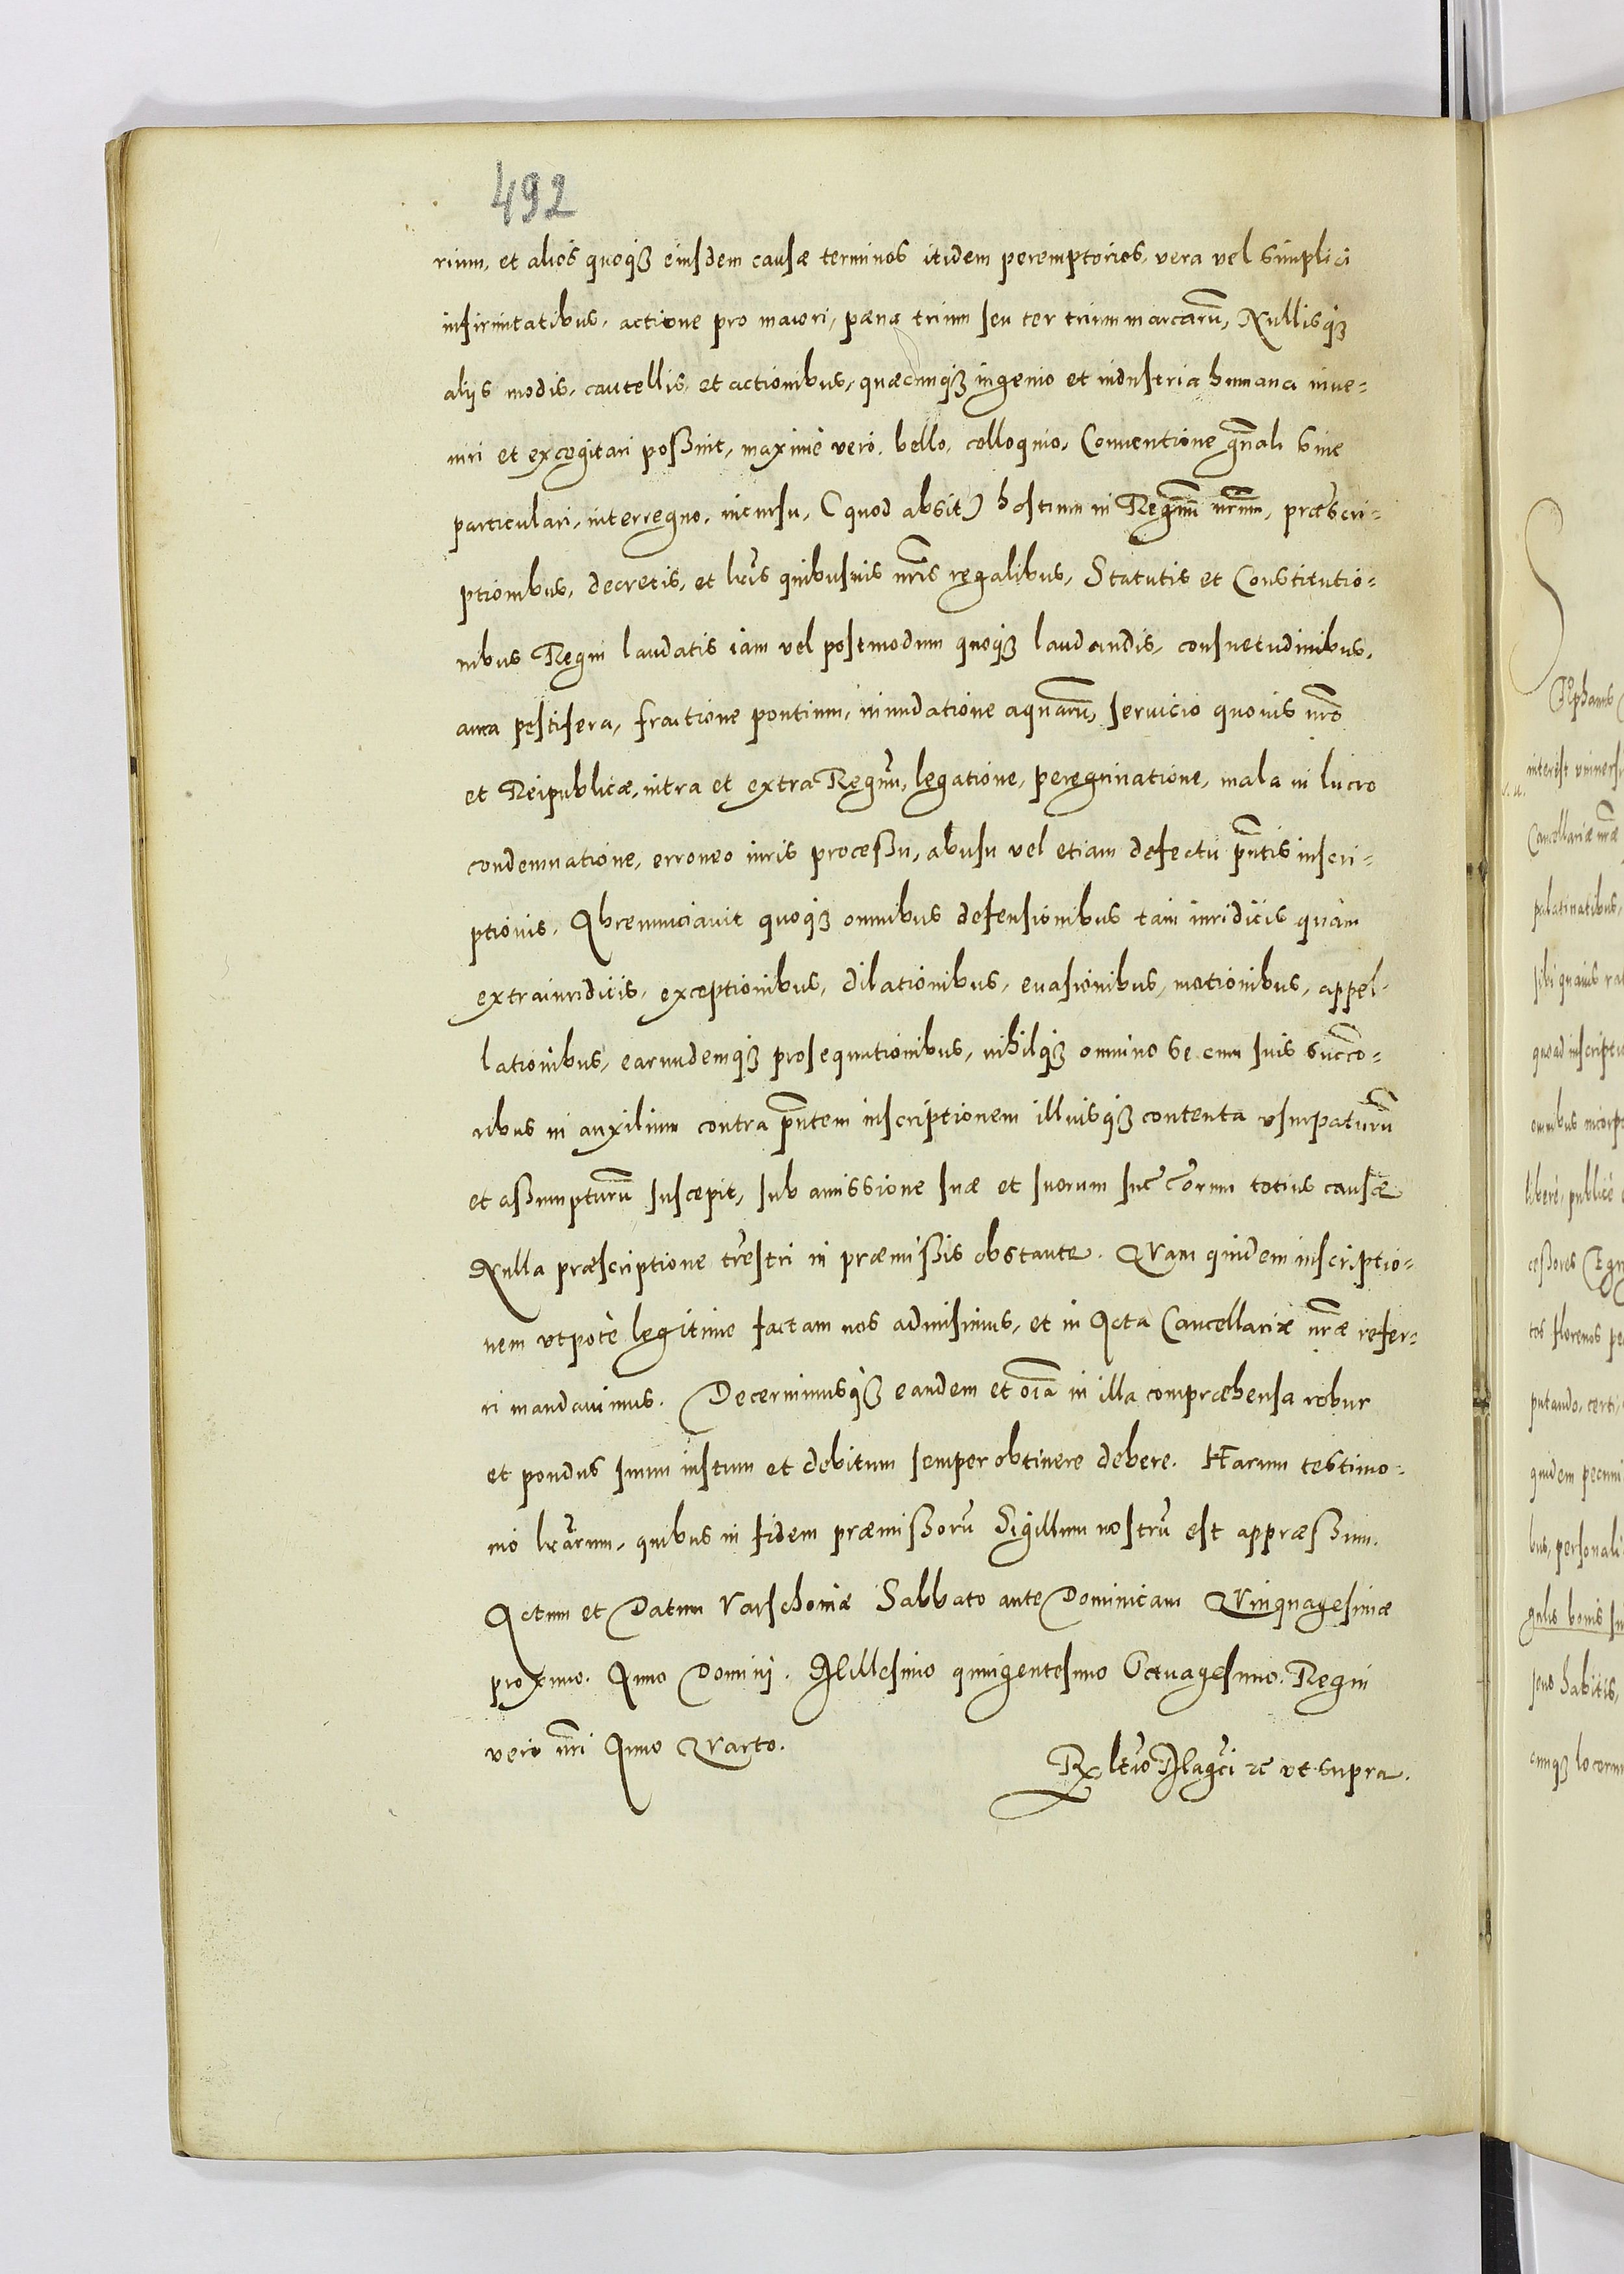 492
rium, et alios quoq₃ eiusdem causæ terminos itidem peremptorios, vera vel simplici
infirmitatibus, actione pro maiori, pæna trium seu ter trium marcarū, Nullisq₃
alijs modis, cautellis, et actionibus, quæcunq₃ ingenio et industria humana inue=
niri et excogitari possint, maximè verò, bello, colloquio, Conuentione gñali siue
particulari, interregno, incursu, (quod absit) hostium in Regnum nrum, præscri=
ptionibus, decretis, et lris quibusuis nris regalibus, Statutis et Constitutio=
nibus Regni laudatis iam vel postmodum quoq₃ laudandis, consuetudinibus,
aura pestifera, fractione pontium, inundatione aquarū, seruicio quouis nro
et Reipublicæ, intra et extra Regnū, legatione, peregrinatione, mala in lucro
condemnatione, erroneo iuris processu, abusu vel etiam defectu pntis inscri=
ptionis. Abrenunciauit quoq₃ omnibus defensionibus tam iuridicis quàm
extraiuridicis, exceptionibus, dilationibus, euasionibus, motionibus, appel=
lationibus, earundemq₃ prosequutionibus, nihilq₃ omnino se cum suis succō=
ribus in auxilium contra pntem inscriptionem illiusq₃ contenta vsurpaturū
et assumpturū suscepit, sub amissione suæ et suorum succ̄orum totius causæ
Nulla præscriptione trestri in præmissis obstante. Quam quidem inscriptio=
nem vtpotè legitime factam nos admisimus, et in Acta Cancellariæ nræ refer=
ri mandauimus. Decernimusq₃ eandem et oīa in illa compræhensa robur
et pondus suum iustum et debitum semper obtinere debere. Harum testimo=
nio lrarum, quibus in fidem præmissorū Sigillum nostrū est appræssum.
Actum et Datum Varschouiæ Sabbato ante Dominicam Quinquagesimæ
proximo. Anno Domini. Millesimo quingentesimo Octuagesimo. Regni
verò nri Anno Quarto.
Rx ltio Magci ꝛc vt supra.
Stephanus
interest vniuersis
Cancellariæ nræ
palatinatibus,
sibi quauis
quoad
omnibus
liberè, publicè
cessores
tos florenos
putando, certi
quidem
bus, personali
gulis bonis
habitis,
cunq₃ locorum